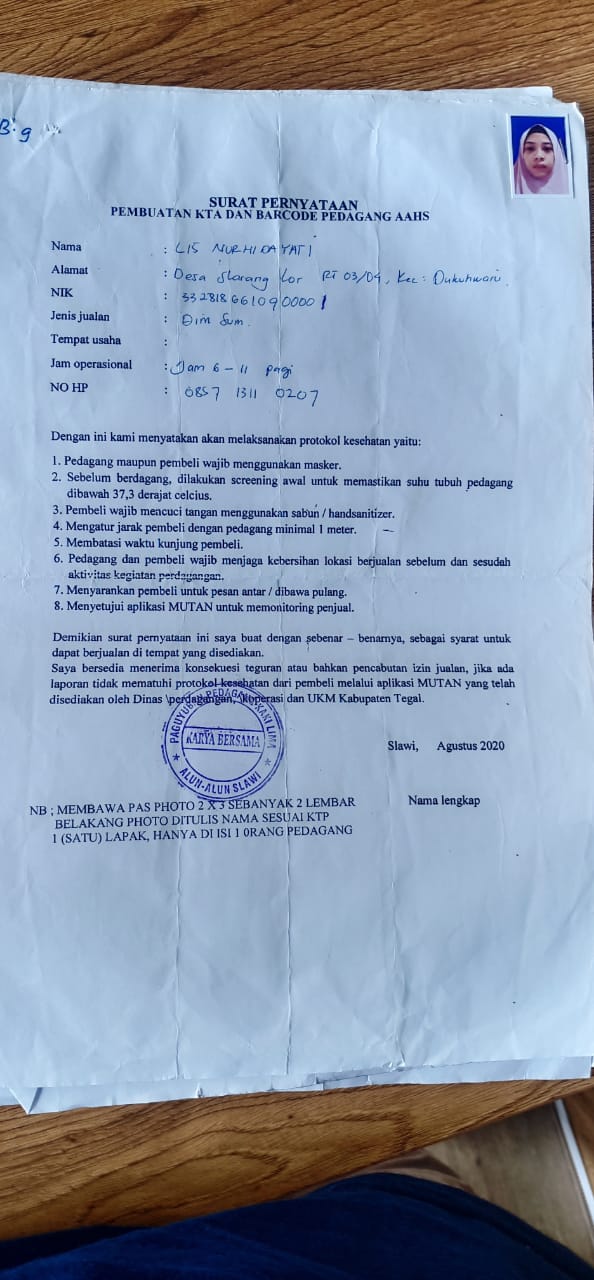 B.9
SURAT PERNYATAAN
PEMBUATAN KTA DAN BARCODE PEDAGANG AAHS
Nama : LIS NURHIDAYATI
Alamat : Desa Slarang Lor RT 03/04, Kec : Dukuhwaru.
NIK : 3328186610900001
Jenis jualan : Dim Sum.
Tempat usaha :
Jam operasional : Jam 6 - 11 pagi
NO HP : 0857 1311 0207
Dengan ini kami menyatakan akan melaksanakan protokol kesehatan yaitu:
1. Pedagang maupun pembeli wajib menggunakan masker.
2. Sebelum berdagang, dilakukan screening awal untuk memastikan suhu tubuh pedagang
dibawah 37,3 derajat celcius.
3. Pembeli wajib mencuci tangan menggunakan sabun / handsanitizer.
4. Mengatur jarak pembeli dengan pedagang minimal 1 meter.
5. Membatasi waktu kunjung pembeli.
6. Pedagang dan pembeli wajib menjaga kebersihan lokasi berjualan sebelum dan sesudah
aktivitas kegiatan perdagangan.
7. Menyarankan pembeli untuk pesan antar / dibawa pulang.
8. Menyetujui aplikasi MUTAN untuk memonitoring penjual.
Demikian surat pernyataan ini saya buat dengan sebenar – benarnya, sebagai syarat untuk
dapat berjualan di tempat yang disediakan.
Saya bersedia menerima konsekuesi teguran atau bahkan pencabutan izin jualan, jika ada
laporan tidak mematuhi protokol kesehatan dari pembeli melalui aplikasi MUTAN yang telah
disediakan oleh Dinas \perdagangan, Koperasi dan UKM Kabupaten Tegal.
PAGUYUBAN PEDAGANG KAKI LIMA
KARYA BERSAMA
ALUN-ALUN SLAWI
Slawi, Agustus 2020
Nama lengkap
NB ; MEMBAWA PAS PHOTO 2 X 3 SEBANYAK 2 LEMBAR
BELAKANG PHOTO DITULIS NAMA SESUAI KTP
1 (SATU) LAPAK, HANYA DI ISI 1 0RANG PEDAGANG